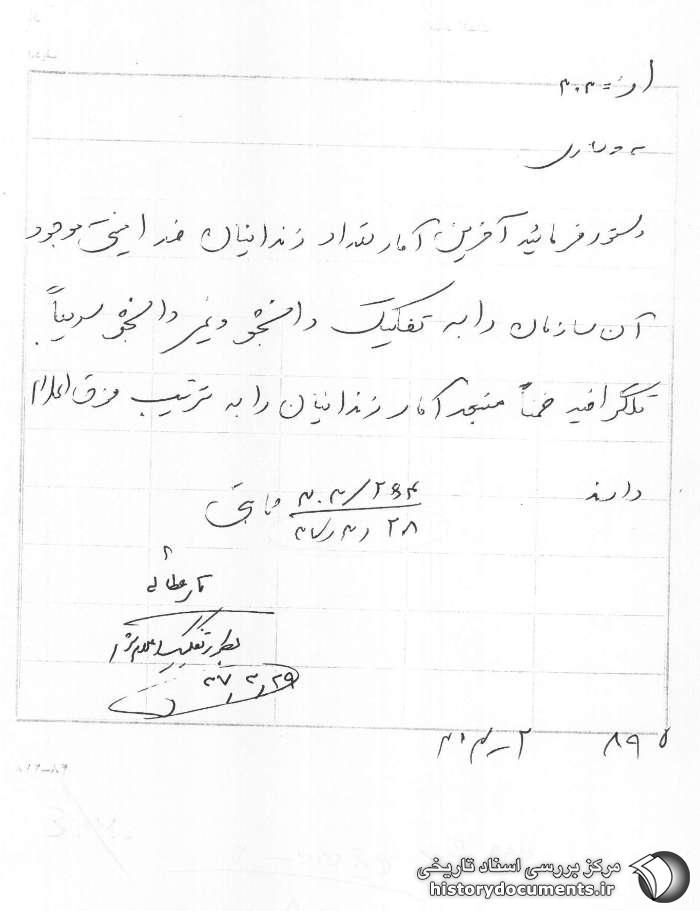 از = ۳۰۳
به
دستور فرمائید آخرین آمار تعداد زندانیان ضد امنیتی موجود
آن سازمان را به تفکیک دانشجو و غیر دانشجو سریعاً
تلگرافید ضمناً منبعد آمار زندانیان را به ترتیب فوق اعلام
دارند
۳۰۳/۲۶۴ ثابتی
۲۸ /۳/ ۳۷
۳۷/۳/۲۹
مرکز بررسی اسناد تاریخی
historydocuments.ir